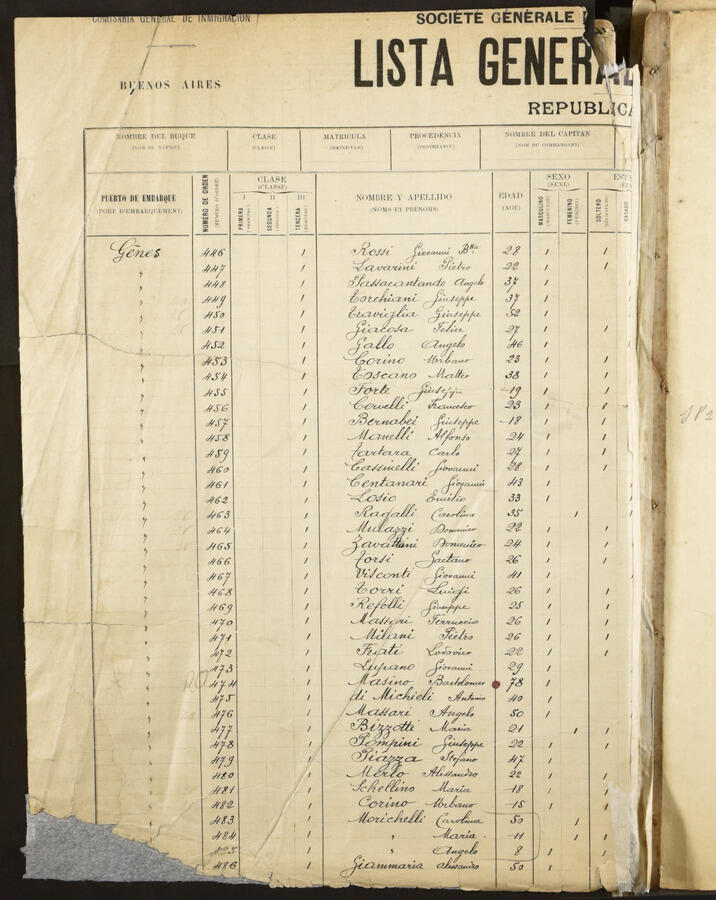 COMISARIA GENERAL DE INMIGRACION
SOCIÉTÉ GÉNÉRALE
LISTA GENERAL
BUENOS AIRES
REPUBLICA
NOMBRE DEL BUQUE CLASE MATRICULA PROCEDENCIA NOMBRE DEL CAPITAN
(NOM DU NAVIRE) (CLASSE) (MATRICULE) (PROVENANCE) (NOM DU COMMANDANT)
PUERTO DE EMBARQUE NÚMERO DE ORDEN CLASE NOMBRE Y APELLIDO EDAD SEXO
(PORT D'EMBARQUEMENT) (CLASSE) (NOMS ET PRÉNOMS) (AGE) (SEXE)
I II III
PRIMERA SEGUNDA TERCERA MASCULINO FEMENINO SOLTERO CASADO
Gênes 446 1 Rossi Giovanni Bta 28 1 1
" 447 1 Lavarini Pietro 22 1 1
" 448 1 Passacantando Angelo 37 1
" 449 1 Torchiani Giuseppe 37 1
" 450 1 Traviglia Giuseppe 52 1
" 451 1 Giacosa Felice 27 1 1
" 452 1 Gallo Angelo 46 1
" 453 1 Corino Urbano 23 1 1
" 454 1 Toscano Matteo 38 1 1
" 455 1 Forte Giuseppe 19 1 1
" 456 1 Cervelli Francesco 23 1 1
" 457 1 Bernabei Giuseppe 18 1 1
" 458 1 Manelli Alfonso 24 1 1
" 459 1 Tartara Carlo 27 1 1
" 460 1 Cassinelli Giovanni 28 1 1
" 461 1 Centanari Giovanni 43 1
" 462 1 Losio Emilio 33 1
" 463 1 Ragalli Carolina 35 1
" 464 1 Mulazzi Domenico 22 1 1
" 465 1 Zavattini Domenico 24 1 1
" 466 1 Torsi Gaetano 26 1 1
" 467 1 Visconti Giovanni 41 1
" 468 1 Torri Luigi 26 1 1
" 469 1 Refolli Giuseppe 25 1 1
" 470 1 Massari Ferruccio 26 1 1
" 471 1 Milani Pietro 26 1 1
" 472 1 Frati Lodovico 22 1 1
" 473 1 Lupano Giovanni 29 1
" 474 1 Masino Bartolomeo 78 1
" 475 1 di Michieli Antonio 40 1
" 476 1 Massari Angelo 50 1
" 477 1 Bizzotti Maria 21 1 1
" 478 1 Pompini Giuseppe 22 1 1
" 479 1 Piazza Stefano 47 1
" 480 1 Merlo Alessandro 22 1 1
" 481 1 Schellino Maria 18 1 1
" 482 1 Corino Urbano 15 1 1
" 483 1 Morichelli Carolina 50 1
" 484 1 " Maria 11 1 1
485 1 " Angelo 8 1 1
486 1 Giammaria Alessandro 50 1